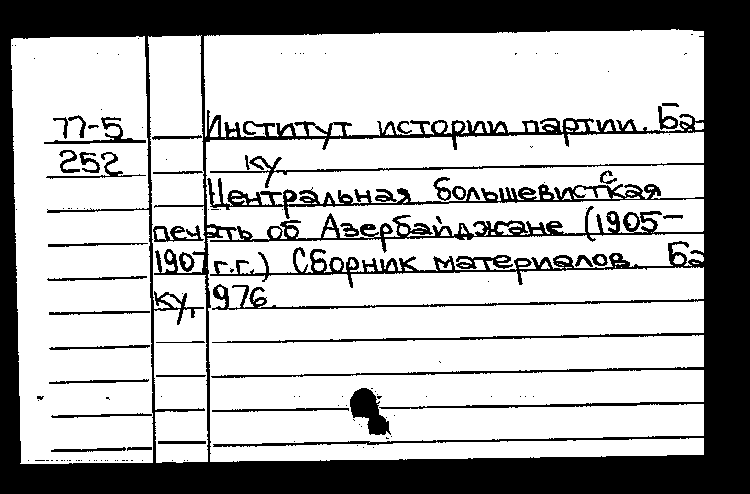 77-5 Институт истории партии. Ба-
252 ку.
Центральная большевистская
печать об Азербайджане (1905-
1907 г.г.) Сборник материалов. Ба
ку, 1976.